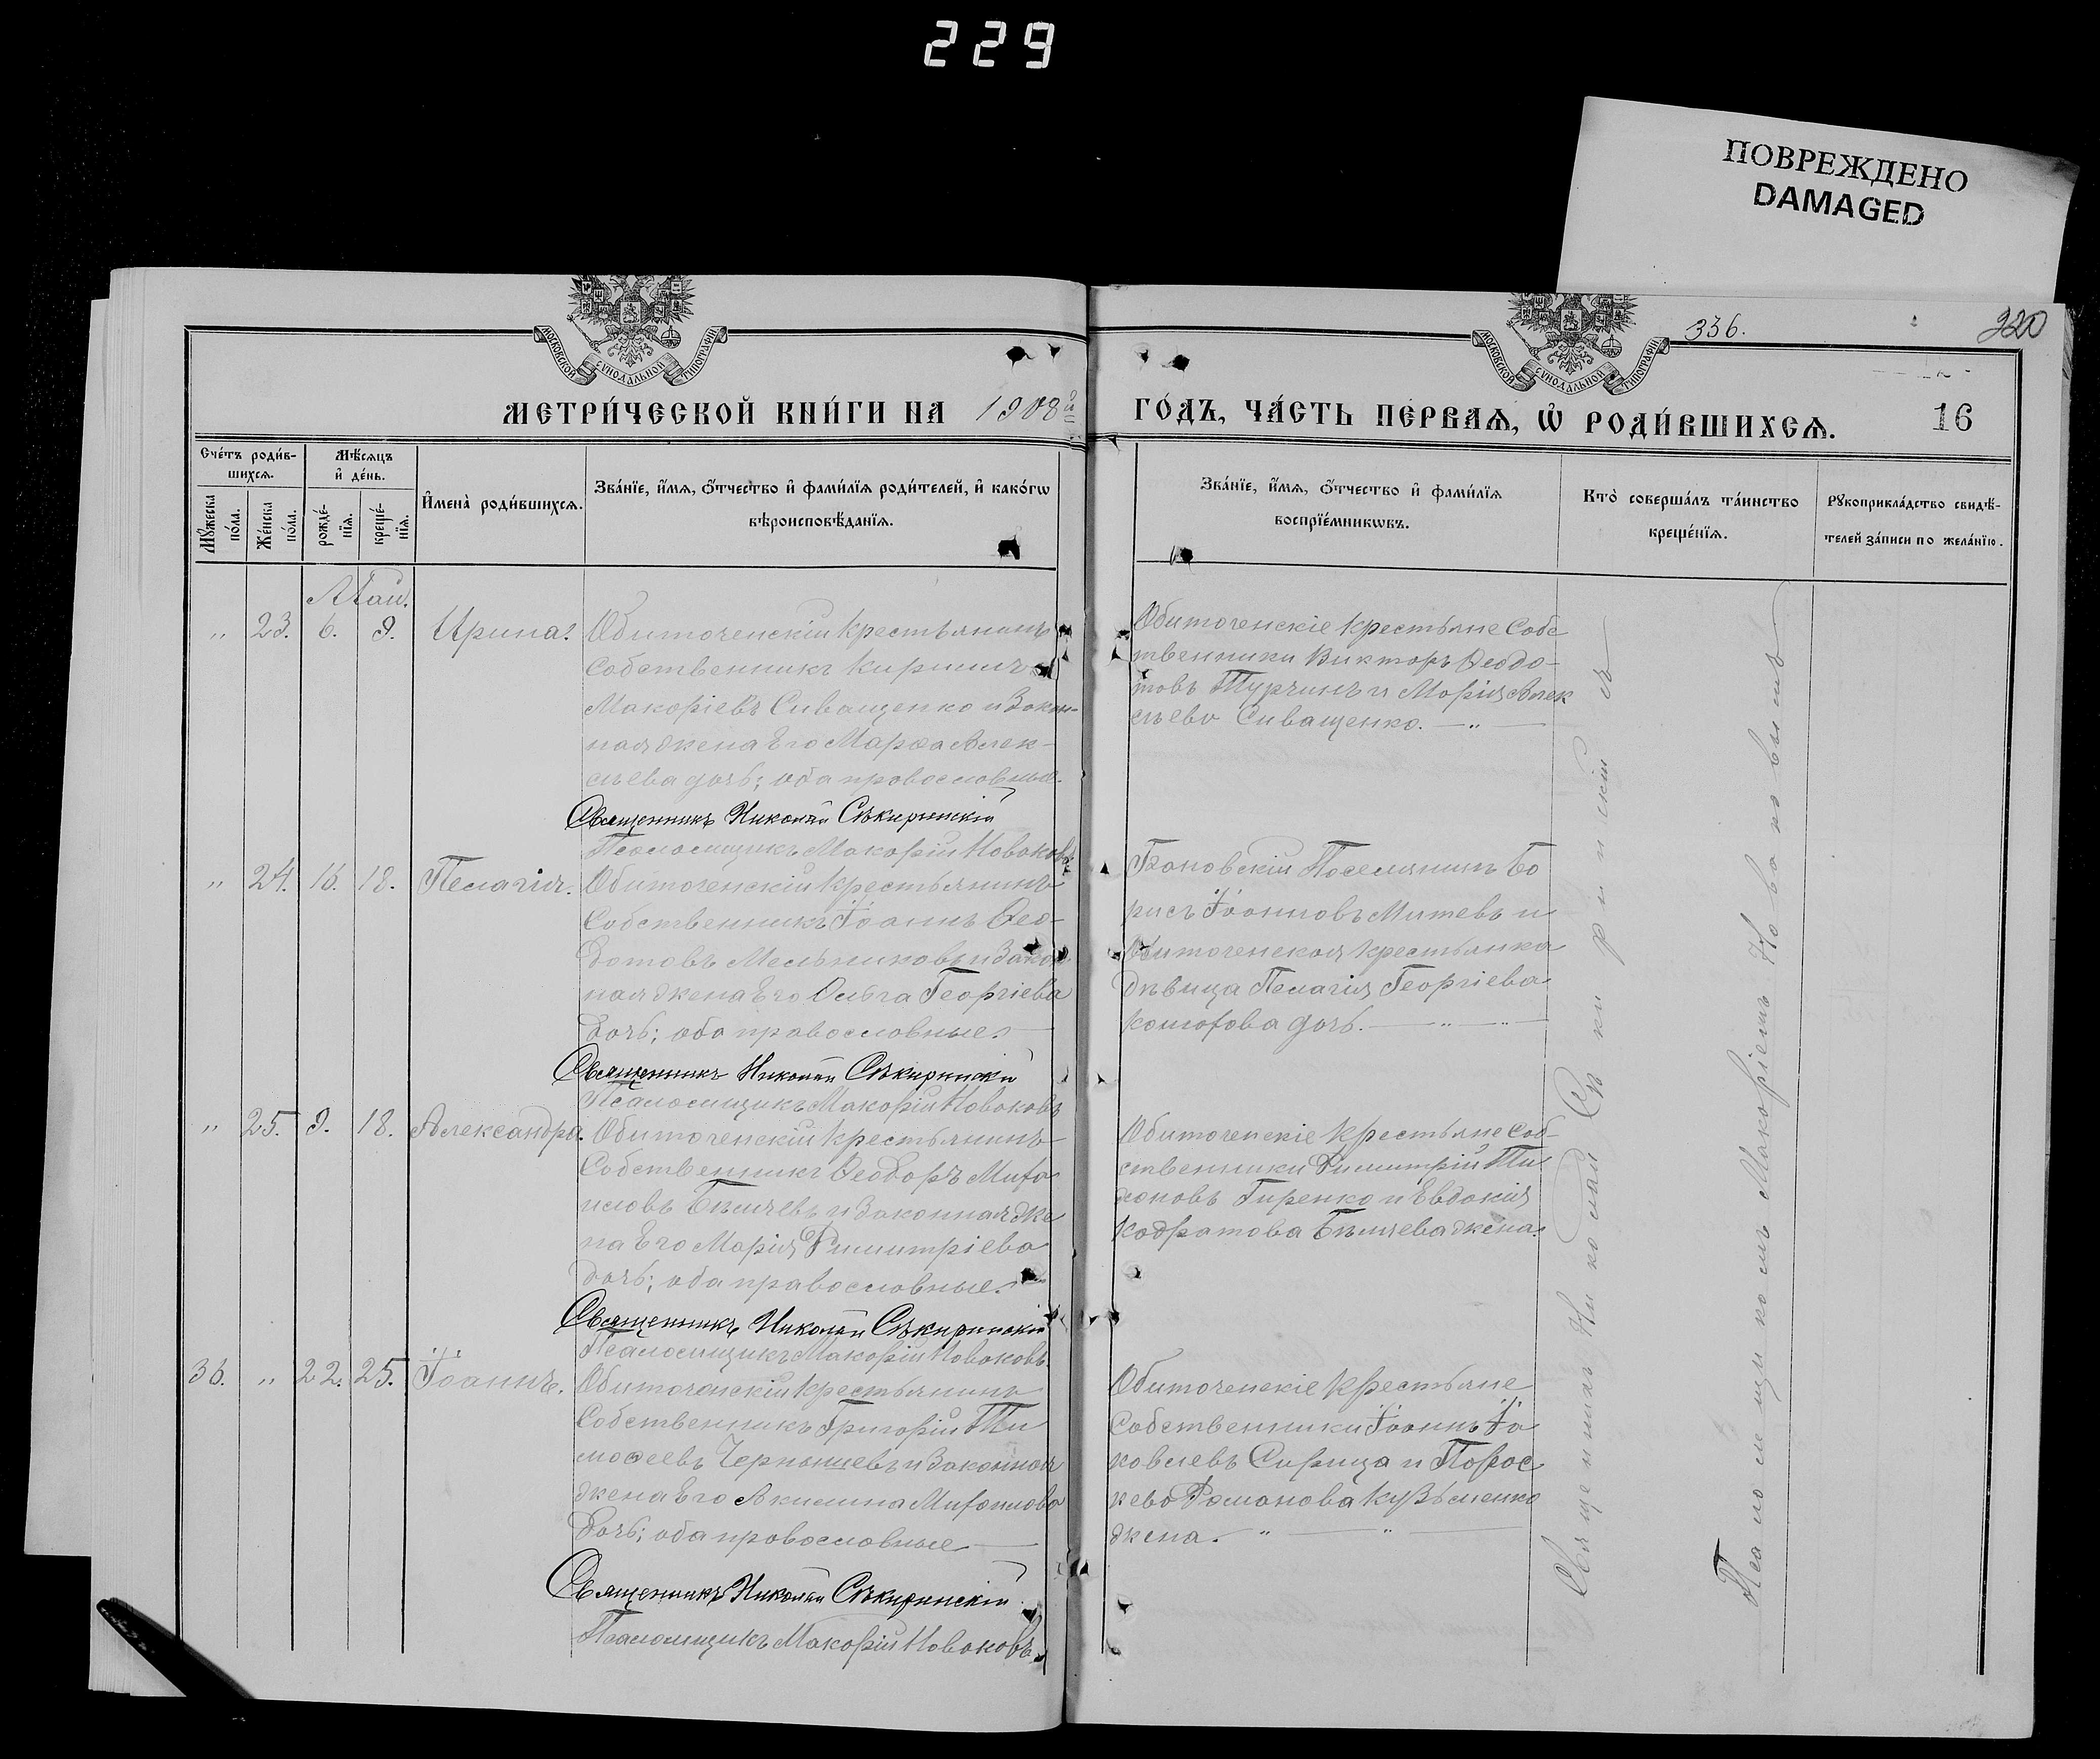 229
ПОВРЕЖДЕНО
DAMAGED
336.
220
МОСКОВСКОЙ СѴНОДАЛЬНОЙ ТИПОГРАФІИ
МОСКОВСКОЙ СѴНОДАЛЬНОЙ ТИПОГРАФІИ
МЕТРИ́ЧЕСКОЙ КНИ́ГИ НА 1908й
ГО́ДЪ, ЧА́СТЬ ПЕ́РВАѦ, Ѡ҆ РОДИ́ВШИХСѦ.
16
Сче́тъ роди́в-
шихсѧ.
Мѣ́сѧцъ
и҆ де́нь.
Мꙋ́жеска по́ла.
Же́нска по́ла.
рожде́-
нїѧ.
креще́-
нїѧ.
И҆мена̀ роди́вшихсѧ.
Зва́нїе, и҆́мѧ, ѻ҆́тчество и҆ фами́лїѧ роди́телей, и҆ како́гѡ
вѣроисповѣ́данїѧ.
Зва́нїе, и҆́мѧ, ѻ҆́тчество и҆ фами́лїѧ
воспрїе́мникѡвъ.
Кто̀ соверша́лъ та́инство
креще́нїѧ.
Рꙋкоприкла́дство свидѣ́-
телей за́писи по жела́нїю.
Май.
" 23. 6. 9. Ирина.
Обиточенскій крестьянинъ
собственникъ Кириллъ
Макаріевъ Сиващенко и Закон-
ная жена Его Марѳа Алек-
сѣева дочь; оба православные.
Священникъ Николай Сѣкиринскій
Псаломщикъ Макарій Новаковъ
Обиточенскіе крестьяне Собс
твенники Викторъ Ѳеодо-
товъ Турчинъ и Марія Алек
сѣева Сиващенко. — " —
" 24. 16. 18. Пелагія.
Обиточенскій крестьянинъ
Собственникъ Іоаннъ Ѳео-
дотовъ Мельниковъ и Закон
ная жена Его Ольга Георгіева
дочь; оба православные.
Священникъ Николай Сѣкиринскій
Псаломщикъ Макарій Новаковъ
Поселянинъ Бо
рисъ Іоанновъ Митевъ и
Обиточенская крестьянка
дѣвица Пелагія Георгіева
дочь. — " — " —
" 25. 9. 18. Александра.
Обиточенскій крестьянинъ
Собственникъ Ѳеодоръ Миха
иловъ Бѣляевъ и Законная же
на Его Марія Димитріева
дочь; оба православные.
Священникъ Николай Сѣкиринскій
Псаломщикъ Макарій Новаковъ
Обиточенскіе крестьяне Соб-
ственники Димитрій Ти
хоновъ Гиренко и Евдокія
Кодратова Бѣляева жена.
36. " 22. 25. Іоаннъ.
Обиточенскій крестьянинъ
Собственникъ Григорій Ти
моѳеевъ Чернышевъ и Законная
жена Его Акилина Михаилова
дочь; оба православные
Священникъ Николай Сѣкиринскій
Псаломщикъ Макарій Новаковъ
Обиточенскіе крестьяне
Собственники Іоаннъ Іа
ковлевъ Сирица и Парас
кева Романова Кузьменко
жена. " "
Священникъ Николай Сѣкиринскій съ
Псаломщикомъ Макаріемъ Новаковымъ